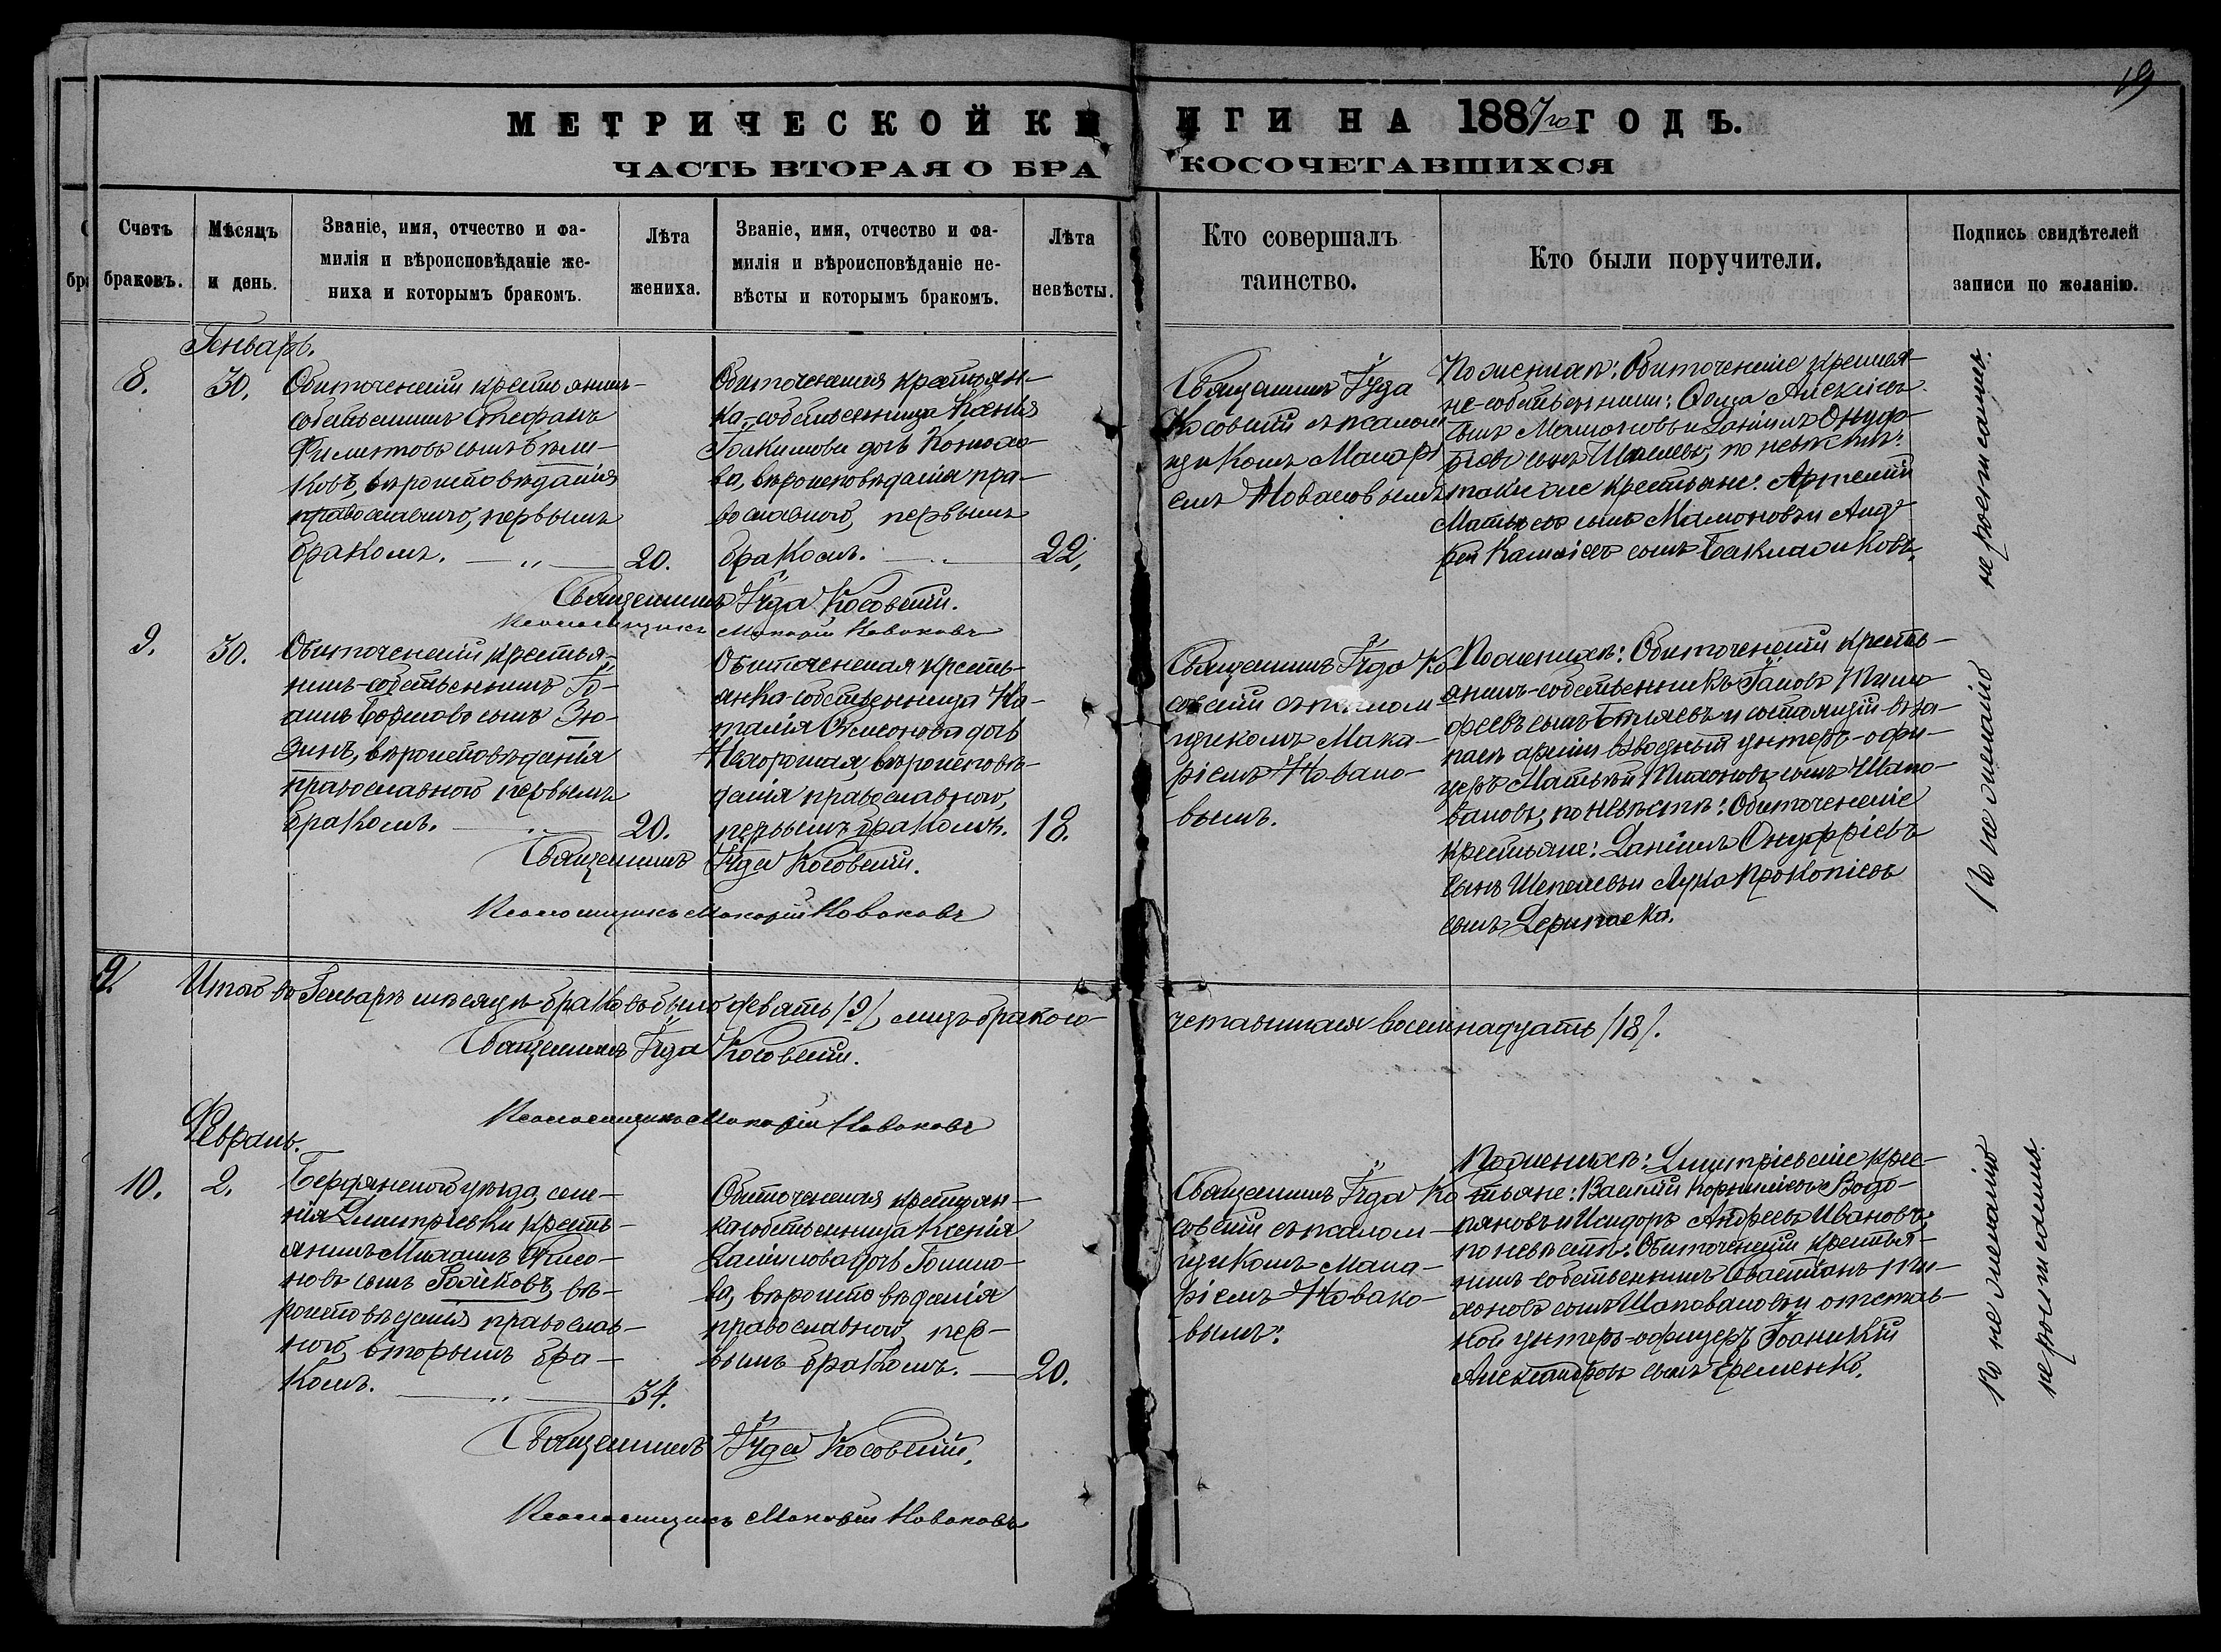 19
МЕТРИЧЕСКОЙ КНИГИ НА 1887го ГОДЪ.
ЧАСТЬ ВТОРАЯ О БРАКОСОЧЕТАВШИХСЯ
Счетъ браковъ.
Мѣсяцъ и день.
Званіе, имя, отчество и фа-
милія и вѣроисповѣданіе же-
ниха и которымъ бракомъ.
Лѣта
жениха.
Званіе, имя, отчество и фа-
милія и вѣроисповѣданіе не-
вѣсты и которымъ бракомъ.
Лѣта
невѣсты.
Кто совершалъ
таинство.
Кто были поручители.
Подпись свидѣтелей
записи по желанію.
Генварь.
8.
30.
Обиточенскій крестьянинъ-
собственникъ Стефанъ
Филитовъ сынъ Бѣли-
ковъ, вѣроисповѣданія
православнаго, первымъ
бракомъ.
20.
Обиточенская крестьян-
ка-собственница Ксенія
Іоакимова дочь
ва, вѣроисповѣданія пра-
вославного, первымъ
бракомъ.
22.
Священникъ Іуда
Косовскій съ псалом
щикомъ Макарі
емъ Новаковымъ
По женихѣ: Обиточенскіе крестья-
не-собственники: Алексѣевъ
сынъ Мамоновъ и Даніилъ Онуф-
ріевъ сынъ Шепелевъ; по невѣстѣ:
такіе же крестьяне: Артемій
Матвѣевъ сынъ Мамоновъ и Анд-
рей сынъ Баклажиковъ.
не росписались.
Священникъ Іуда Косовскій.
Псаломщикъ Макарій Новаковъ
9.
30.
Обиточенскій крестья-
нинъ-собственникъ Іо-
аннъ Борисовъ сынъ Зю-
зинъ, вѣроисповѣданія
православного первымъ
бракомъ.
20.
Обиточенская кресть-
янка-собственница На-
талія Симонова дочь
Нехорошая, вѣроисповѣ-
данія православного,
первымъ бракомъ.
18.
Священникъ Іуда Ко
совскій съ псалом-
щикомъ Мака-
ріемъ Новако-
вымъ.
По женихѣ: Обиточенскій кресть-
янинъ-собственникъ Іаковъ Тимо
феевъ сынъ Бѣляевъ и состоящій въ за-
пасѣ арміи взводный унтеръ-офи-
церъ Матвѣй Тихоновъ сынъ Шапо-
валовъ, по невѣстѣ: Обиточенскіе
крестьяне: Даніилъ Онуфріевъ
сынъ Шепелевъ и Лука Прокопіевъ
сынъ Дерипаска.
По не желанію
Священникъ Іуда Косовскій.
Псаломщикъ Макарій Новаковъ
9.
Итого въ Генварѣ мѣсяцѣ браковъ было девять /9/, лицъ бракосо-
четавшихся восемнадцать /18/.
Священникъ Іуда Косовскій.
Псаломщикъ Макарій Новаковъ
Февраль.
10.
2.
Бердянскаго уѣзда, селе-
нія Дмитріевки кресть-
янинъ Михаилъ
новъ сынъ вѣ-
роисповѣданія православ-
ного, вторымъ бра-
комъ.
34.
Обиточенская крестьян-
ка собственница Ксенія
Даніилова дочь
ва, вѣроисповѣданія
православного, пер-
вымъ бракомъ.
20.
Священникъ Іуда Ко
совскій съ псалом-
щикомъ Мака-
ріемъ Новако-
вымъ.
По женихѣ: Дмитріевскіе крес-
тьяне: Василій Корниліевъ Водо-
пьяновъ и Исидоръ Андреевъ Ивановъ,
по невѣстѣ: Обиточенскій крестья-
нинъ-собственникъ Севастіанъ Ти-
хоновъ сынъ Шаповаловъ и отстав-
ной унтеръ-офицеръ Іоанникій
Александровъ сынъ Еременко.
По не желанію
не росписались.
Священникъ Іуда Косовскій.
Псаломщикъ Макарій Новаковъ